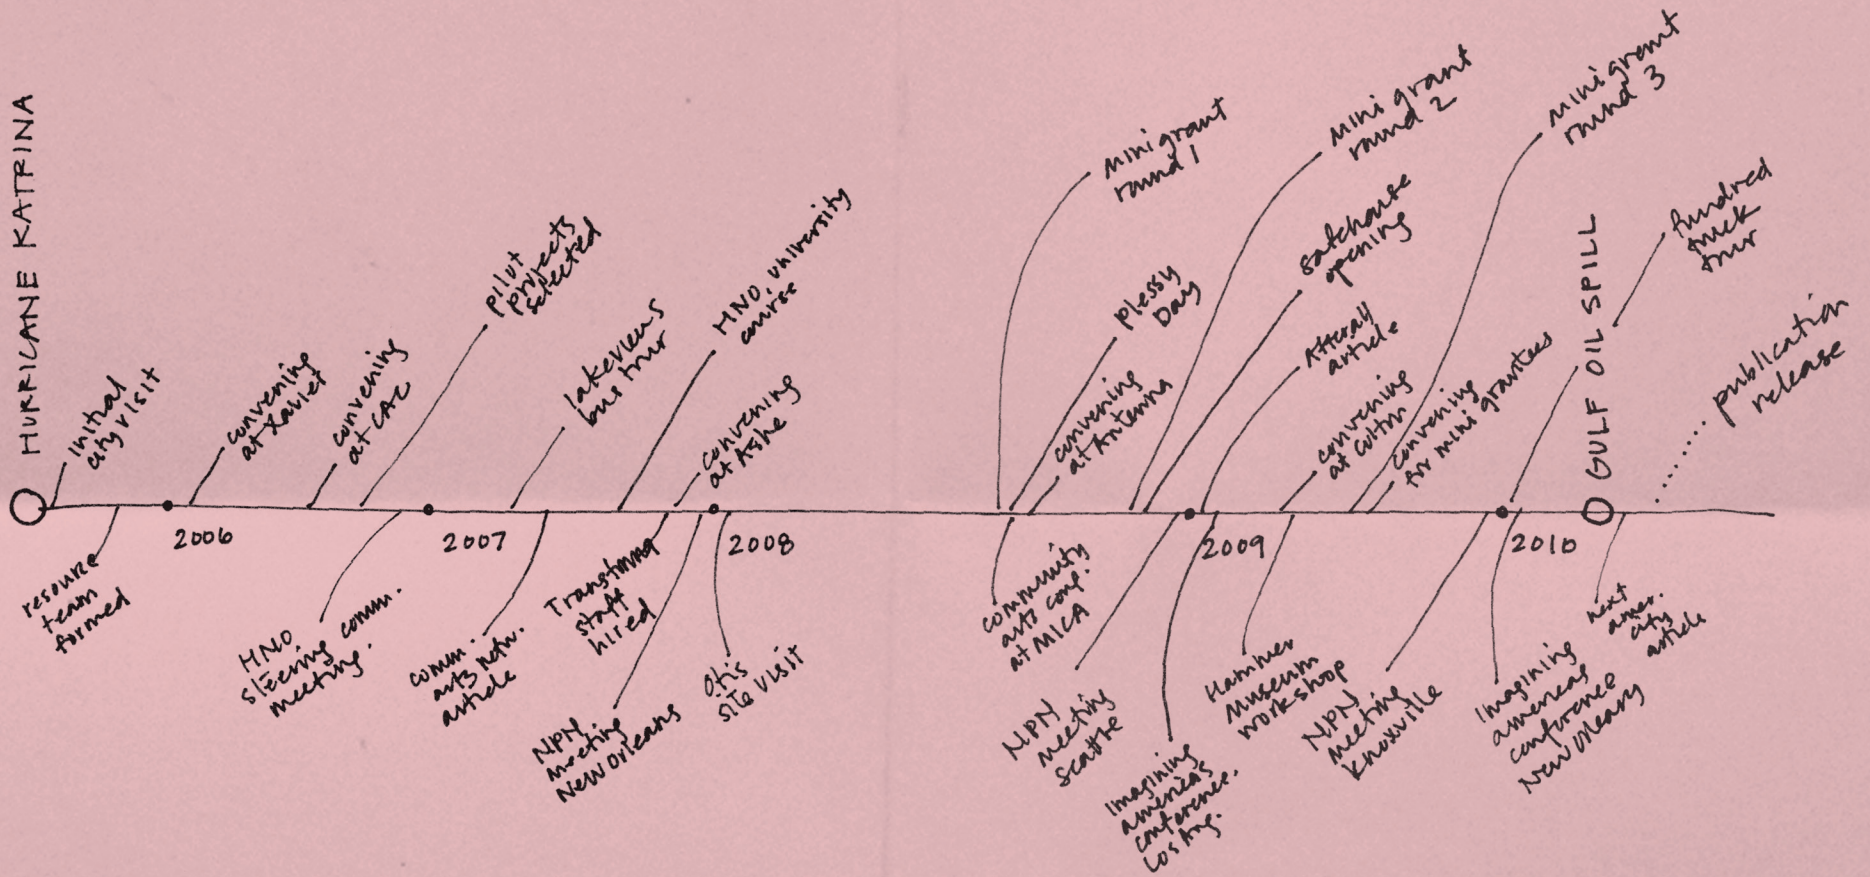 HURRICANE KATRINA
initial
city visit
convening
at Xavier
convening
at CAC
pilot
projects
selected
lakeviews
bus tour
HNO university
course
convening
at Ashe
mini grant
round 1
Plessy
Day
convening
at Antenna
mini grant
round 2
satchouse
opening
Afterall
article
convening
at Colton
mini grant
round 3
convening
for mini grantees
GULF OIL SPILL
fundred
truck
tour
publication
release
2006
2007
2008
2009
2010
resource
team
formed
HNO
steering comm.
meeting.
comm.
arts netw.
article
Transforma
staff
hired
NPN
meeting
New Orleans
Otis
site visit
community
arts conf.
at MICA
NPN
meeting
Seattle
Imagining
americas
conference.
Los Ang.
Hammer
Museum
workshop
NPN
meeting
Knoxville
Imagining
americas
conference
New Orleans
next
amer.
city
article